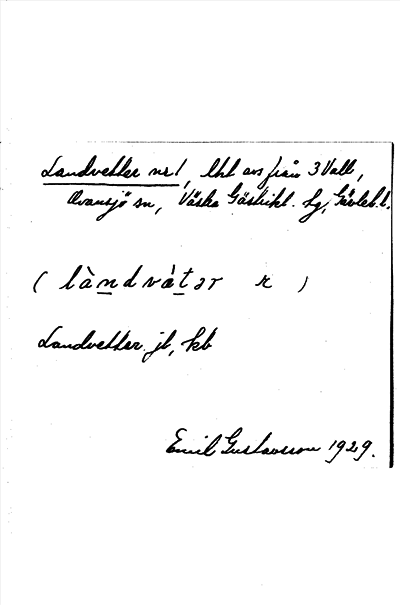 Landvetter nr 1, lht avs från 3 Vall,
Ovansjö sn, Västra Gästrikl. tg, Gävleb. l.
( làndvàtər r )
Landvetter jb, kb
Emil Gustavsson 1929.